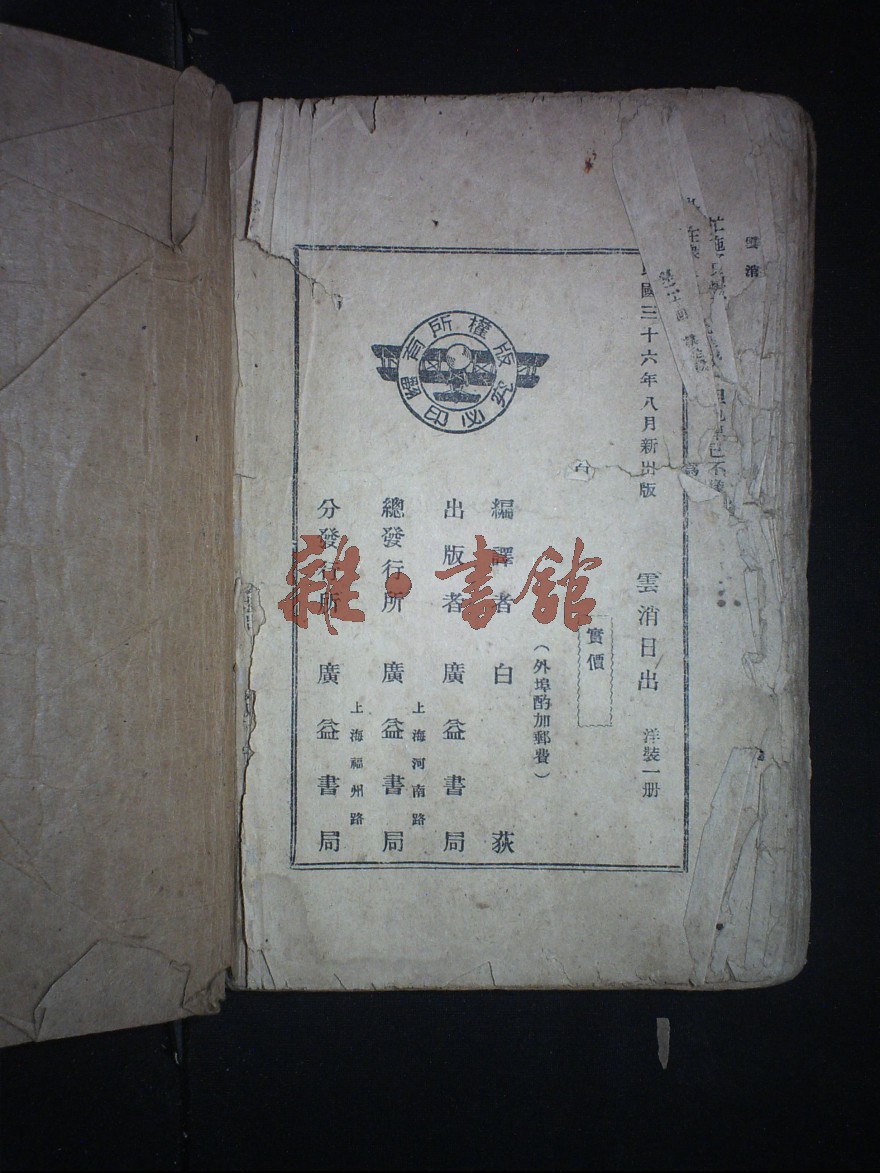 國三十六年八月新出版
雲消日出 洋裝一册
實價
(外埠酌加郵費)
編譯者 白荻
出版者 廣益書局
總發行所 上海河南路 廣益書局
分發行所 上海福州路 廣益書局
版權所有
翻印必究
雲消
雜·書館